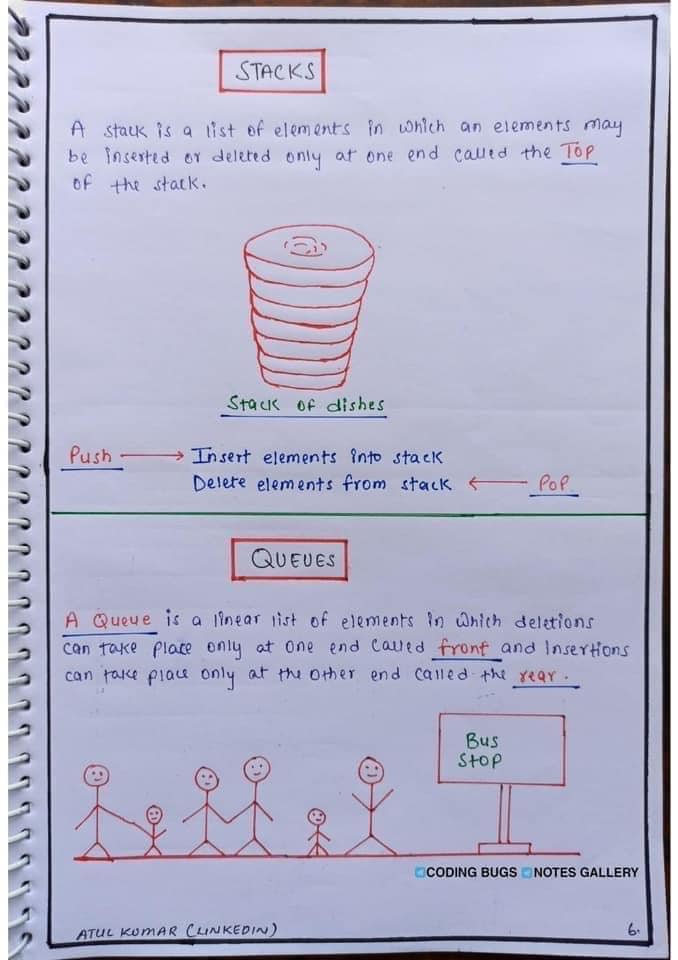 STACKS
A stack is a list of elements in which an elements may
be inserted or deleted only at one end called the Top
of the stack.
Stack of dishes
Push → Insert elements into stack
Delete elements from stack ← Pop
QUEUES
A Queue is a linear list of elements in which deletions
can take place only at one end called front and Insertions
can take place only at the other end called the rear.
Bus
Stop
CODING BUGS NOTES GALLERY
ATUL KUMAR (LINKEDIN)
6.